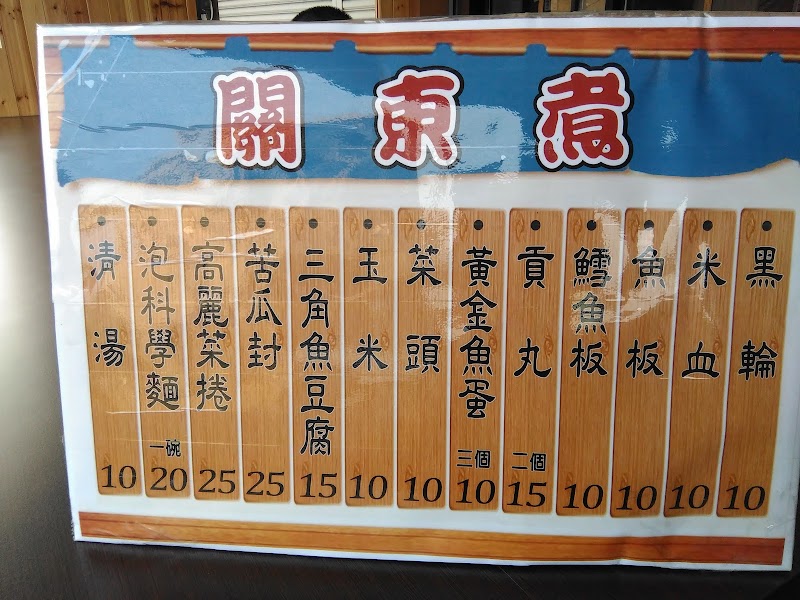 關東煮
黑輪 10
米血 10
魚板 10
鱈魚板 10
貢丸 二個 15
黃金魚蛋 三個 10
菜頭 10
玉米 10
三角魚豆腐 15
苦瓜封 25
高麗菜捲 25
泡科學麵 一碗 20
清湯 10